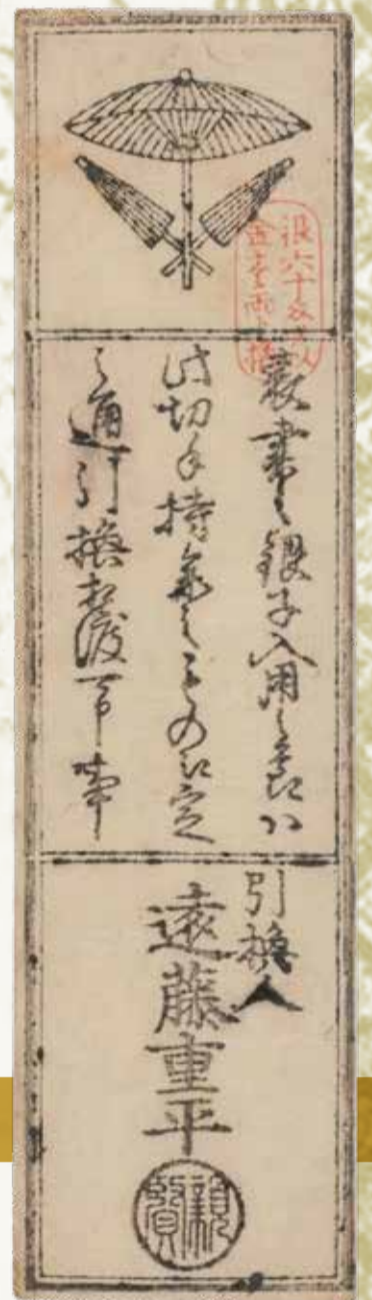 銀六十匁以
金壱両ニ換
裏書之銀子入用之節ハ
此切手持参之もの江定
之通引換相渡可申事
引換人
遠藤重平